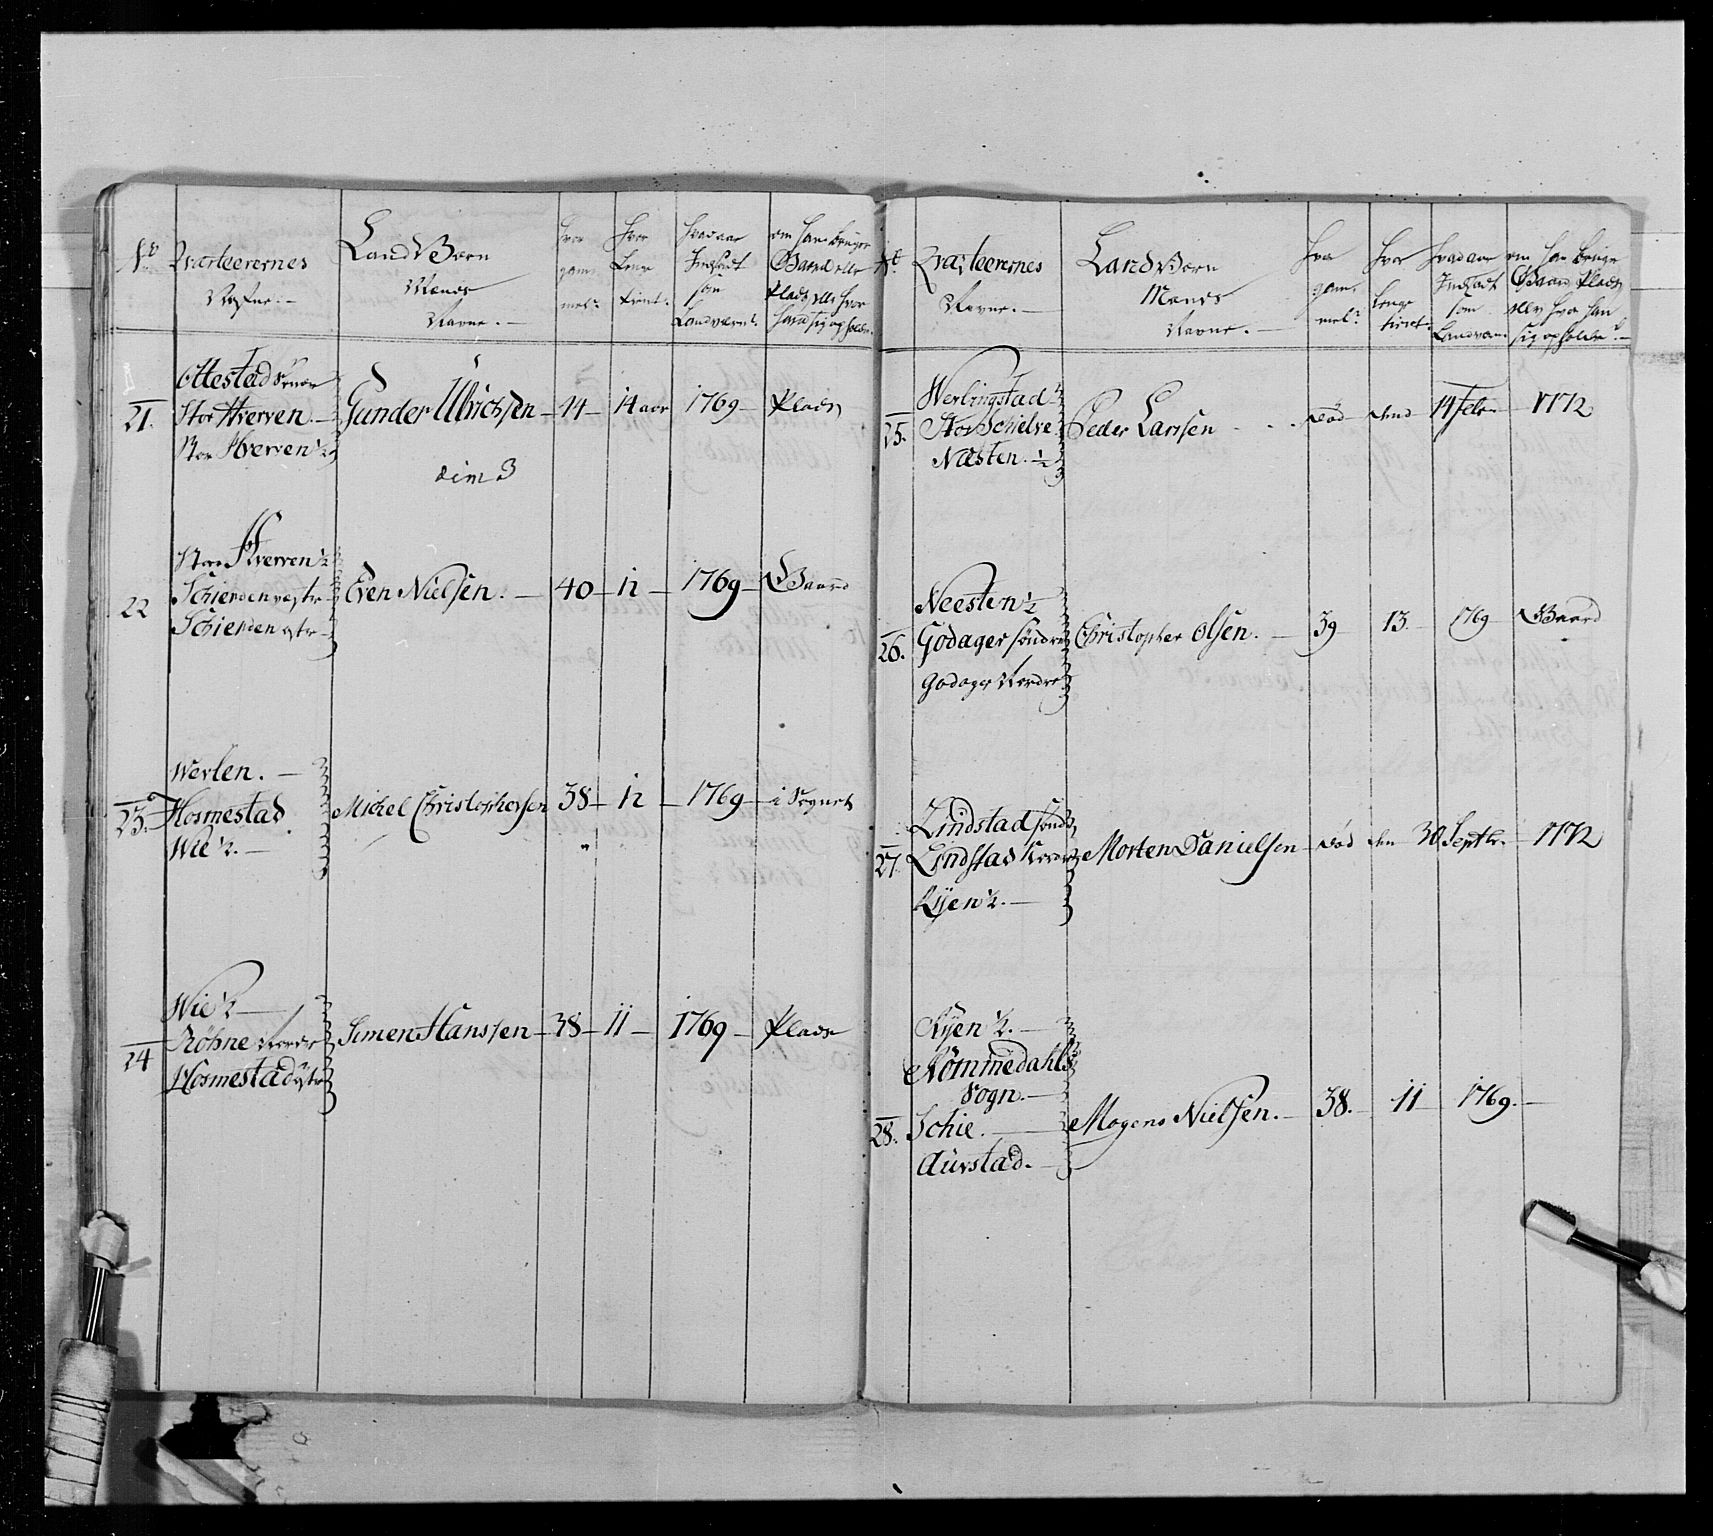 No
Qvarteerernes
Nafne. —
LandVærn
Mends
Navne. —
hvor
gam¬
mel?
hvor
Lenge
tient.
hvad aar
Indsadt
som
Landværn.
om hand bruger
Gaard eller
Plads, eller hvor
hand sig opholder.
21.
Ottestad Svnor
Stor Hverven —
Stor Hverven ½
Gunder Ulrichsen — 44 — 14 aar 1769 — Plads
dim 3
22
Stor Hverven ½
Schierden vestr
Schierden østr —
Even Nielsen. — 40 — 12 — 1769 — Gaard
23.
Werlen. —
Hosmestad
Wie ½. —
Michel Christophersen 38 — 12 — 1769 — i Sognet
24
Wie ½ —
Röhne Nordr
Hosmestad östr
Simen Hanssen — 38 — 11 — 1769 — Plads
No
Qvarteerernes
Navne. —
LandVærn
Mends
Navne. —
hvor
gam¬
mel?
hvor
lenge
tient.
hvad aar
Indsadt
som
Landværn
om han bruger
Gaard Plads
eller hvor han
sig opholder. —
25.
Werlingstad ½
Stor Schelve
Næsten. ½
Peder Larssen - - . död dend 14 Febr 1772
26.
Neesten ½
Godager söndre
Godager Nordre
Christopher Olsen. — 39 13. 1769 Gaard
27.
Lindstad sönd
Lindstad Nordr
Ryen ½. —
Morten Danielsen — död den 30 Septbr. — 1772
28.
Ryen ½. —
Rommedahls
Sogn. —
Schie. —
Aurstad. —
Mogens Nielsen. — 38. — 11 — 1769. —